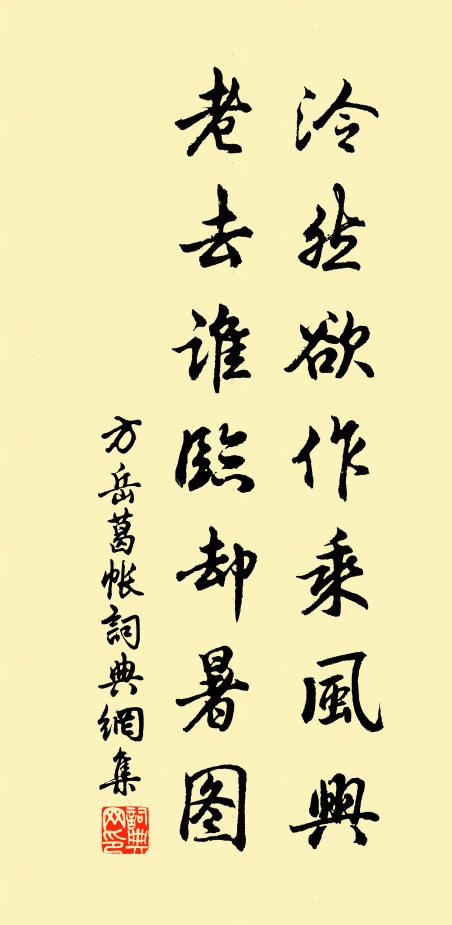 泠然欲作乘風興
老去誰臨却暑图
方岳葛帐詞典網集
詞典网印